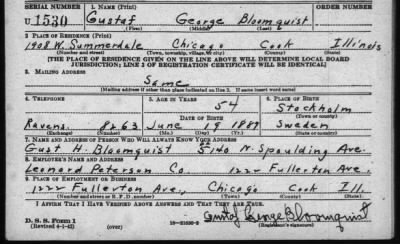 SERIAL NUMBER 1. NAME (Print) ORDER NUMBER
U 1530 Gustaf George Bloomquist
(First) (Middle) (Last)
2. PLACE OF RESIDENCE (Print)
1908 W. Summerdale Chicago Cook Illinois
(Number and street) (Town, township, village, or city) (County) (State)
[THE PLACE OF RESIDENCE GIVEN ON THE LINE ABOVE WILL DETERMINE LOCAL BOARD
JURISDICTION; LINE 2 OF REGISTRATION CERTIFICATE WILL BE IDENTICAL]
3. MAILING ADDRESS
Same
[Mailing address if other than place indicated on line 2. If same insert word same]
4. TELEPHONE 5. AGE IN YEARS 6. PLACE OF BIRTH
54 Stockholm
DATE OF BIRTH (Town or county)
Ravens. 8263 June 19 1887 Sweden
(Exchange) (Number) (Mo.) (Day) (Yr.) (State or country)
7. NAME AND ADDRESS OF PERSON WHO WILL ALWAYS KNOW YOUR ADDRESS
Gust H. Bloomquist 5140 N. Spaulding Ave.
8. EMPLOYER'S NAME AND ADDRESS
Leonard Peterson Co 1222 Fullerton Ave.
9. PLACE OF EMPLOYMENT OR BUSINESS
1222 Fullerton Ave., Chicago Cook Ill.
(Number and street or R. F. D. number) (Town) (County) (State)
I AFFIRM THAT I HAVE VERIFIED ABOVE ANSWERS AND THAT THEY ARE TRUE.
Gustaf George Bloomquist
D. S. S. Form 1
(Revised 4-1-42) (over) (Registrant's signature)